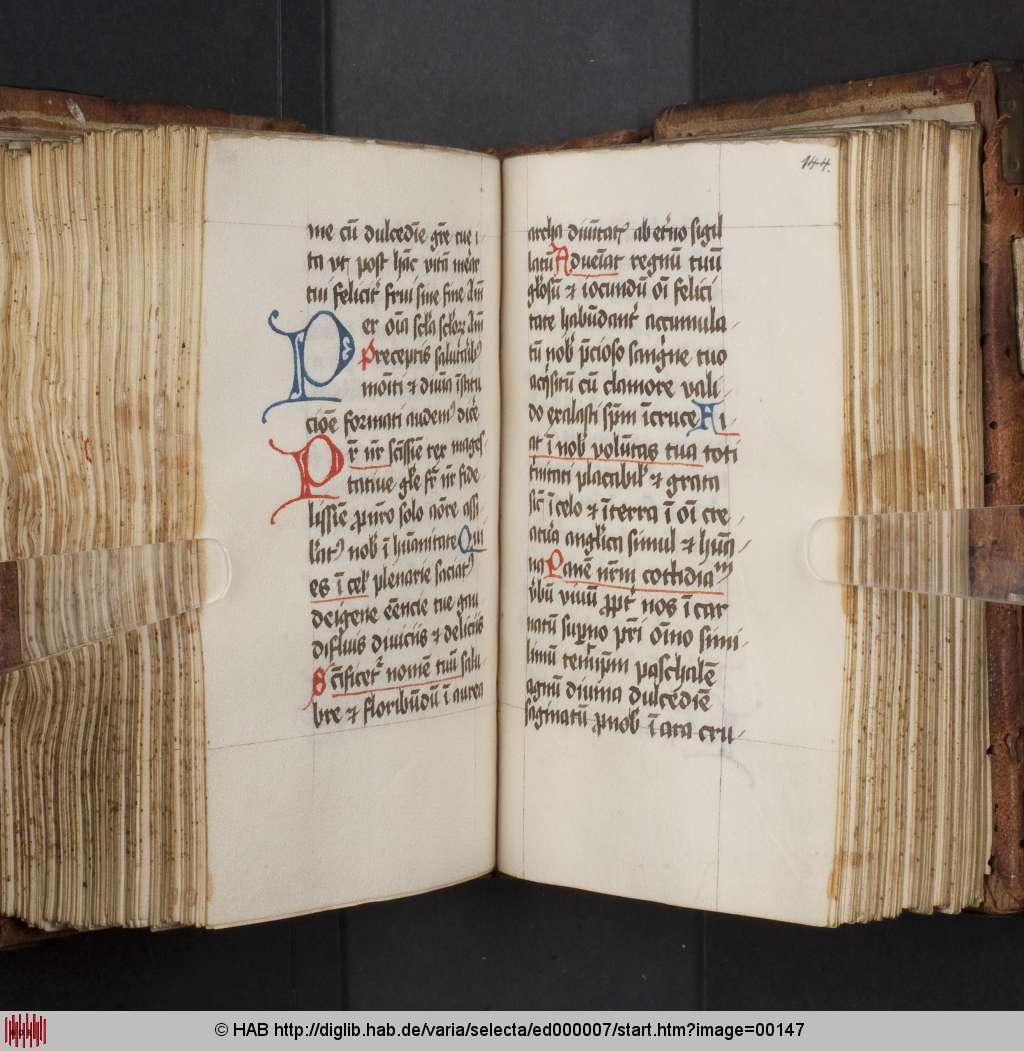 me cū dulcedīe gr̄e tue i
ta vt post hāc vitā mear
tui felicit᷑ frui sine fine Am̄
Per oīa scła scłorꝝ Am̄
Preceptis salut᷑rib᷒
mōiti ⁊ diuīa īstitu
cioē formati audem᷒ dic̄e
Pr̄ nr̄ sc̄issīe rex mages
tatiue głe fr̄ nr̄ fide
lissīe ꝓ nr̄o solo aōre assi
l̄at᷒ nob̄ ī hūanitate Qui
es ī celꝭ plenarie saciat᷒
deigene eēncie tue gau
difluis diuiciis ⁊ deliciis
Sc̄ificet᷑ nomē tuū salu-
bre ⁊ floribūdū ī aurea
144.
archa diuītatꝭ ab et̄no sigil
latū Adueīat regnū tuū
głosū ⁊ iocundū oī felici
tate habūdant᷑ accumula-
tū nob̄ p̄cioso sangīne tuo
acq̄sitū cū clamore vali-
do exalasti sp̄m ī cruce Fi-
at ī nob̄ volūtas tua toti
tinitati placibił ⁊ grata
sic̄ ī celo ⁊ ī terra ī oī cre-
atu᷑a anglīca simul ⁊ hūa-
na Panē nr̄m cottidianū
v̄bū viuū ꝓpt᷑ nos ī car
natū sup̄no pr̄i oīno simi-
limū
paschalē
agnū diuina dulcedīe
saginatū ꝓ nob̄ ī ara cru-
© HAB http://diglib.hab.de/varia/selecta/ed000007/start.htm?image=00147